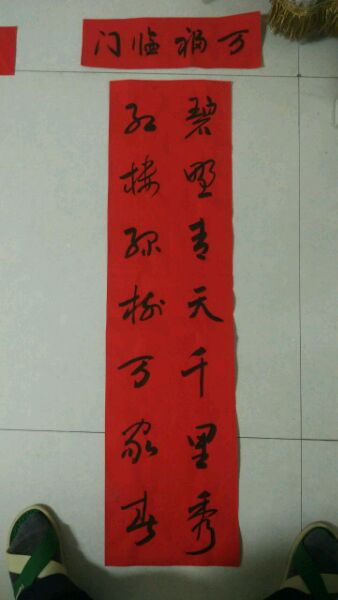 万福临门
碧野青天千里秀
红楼绿树万家春